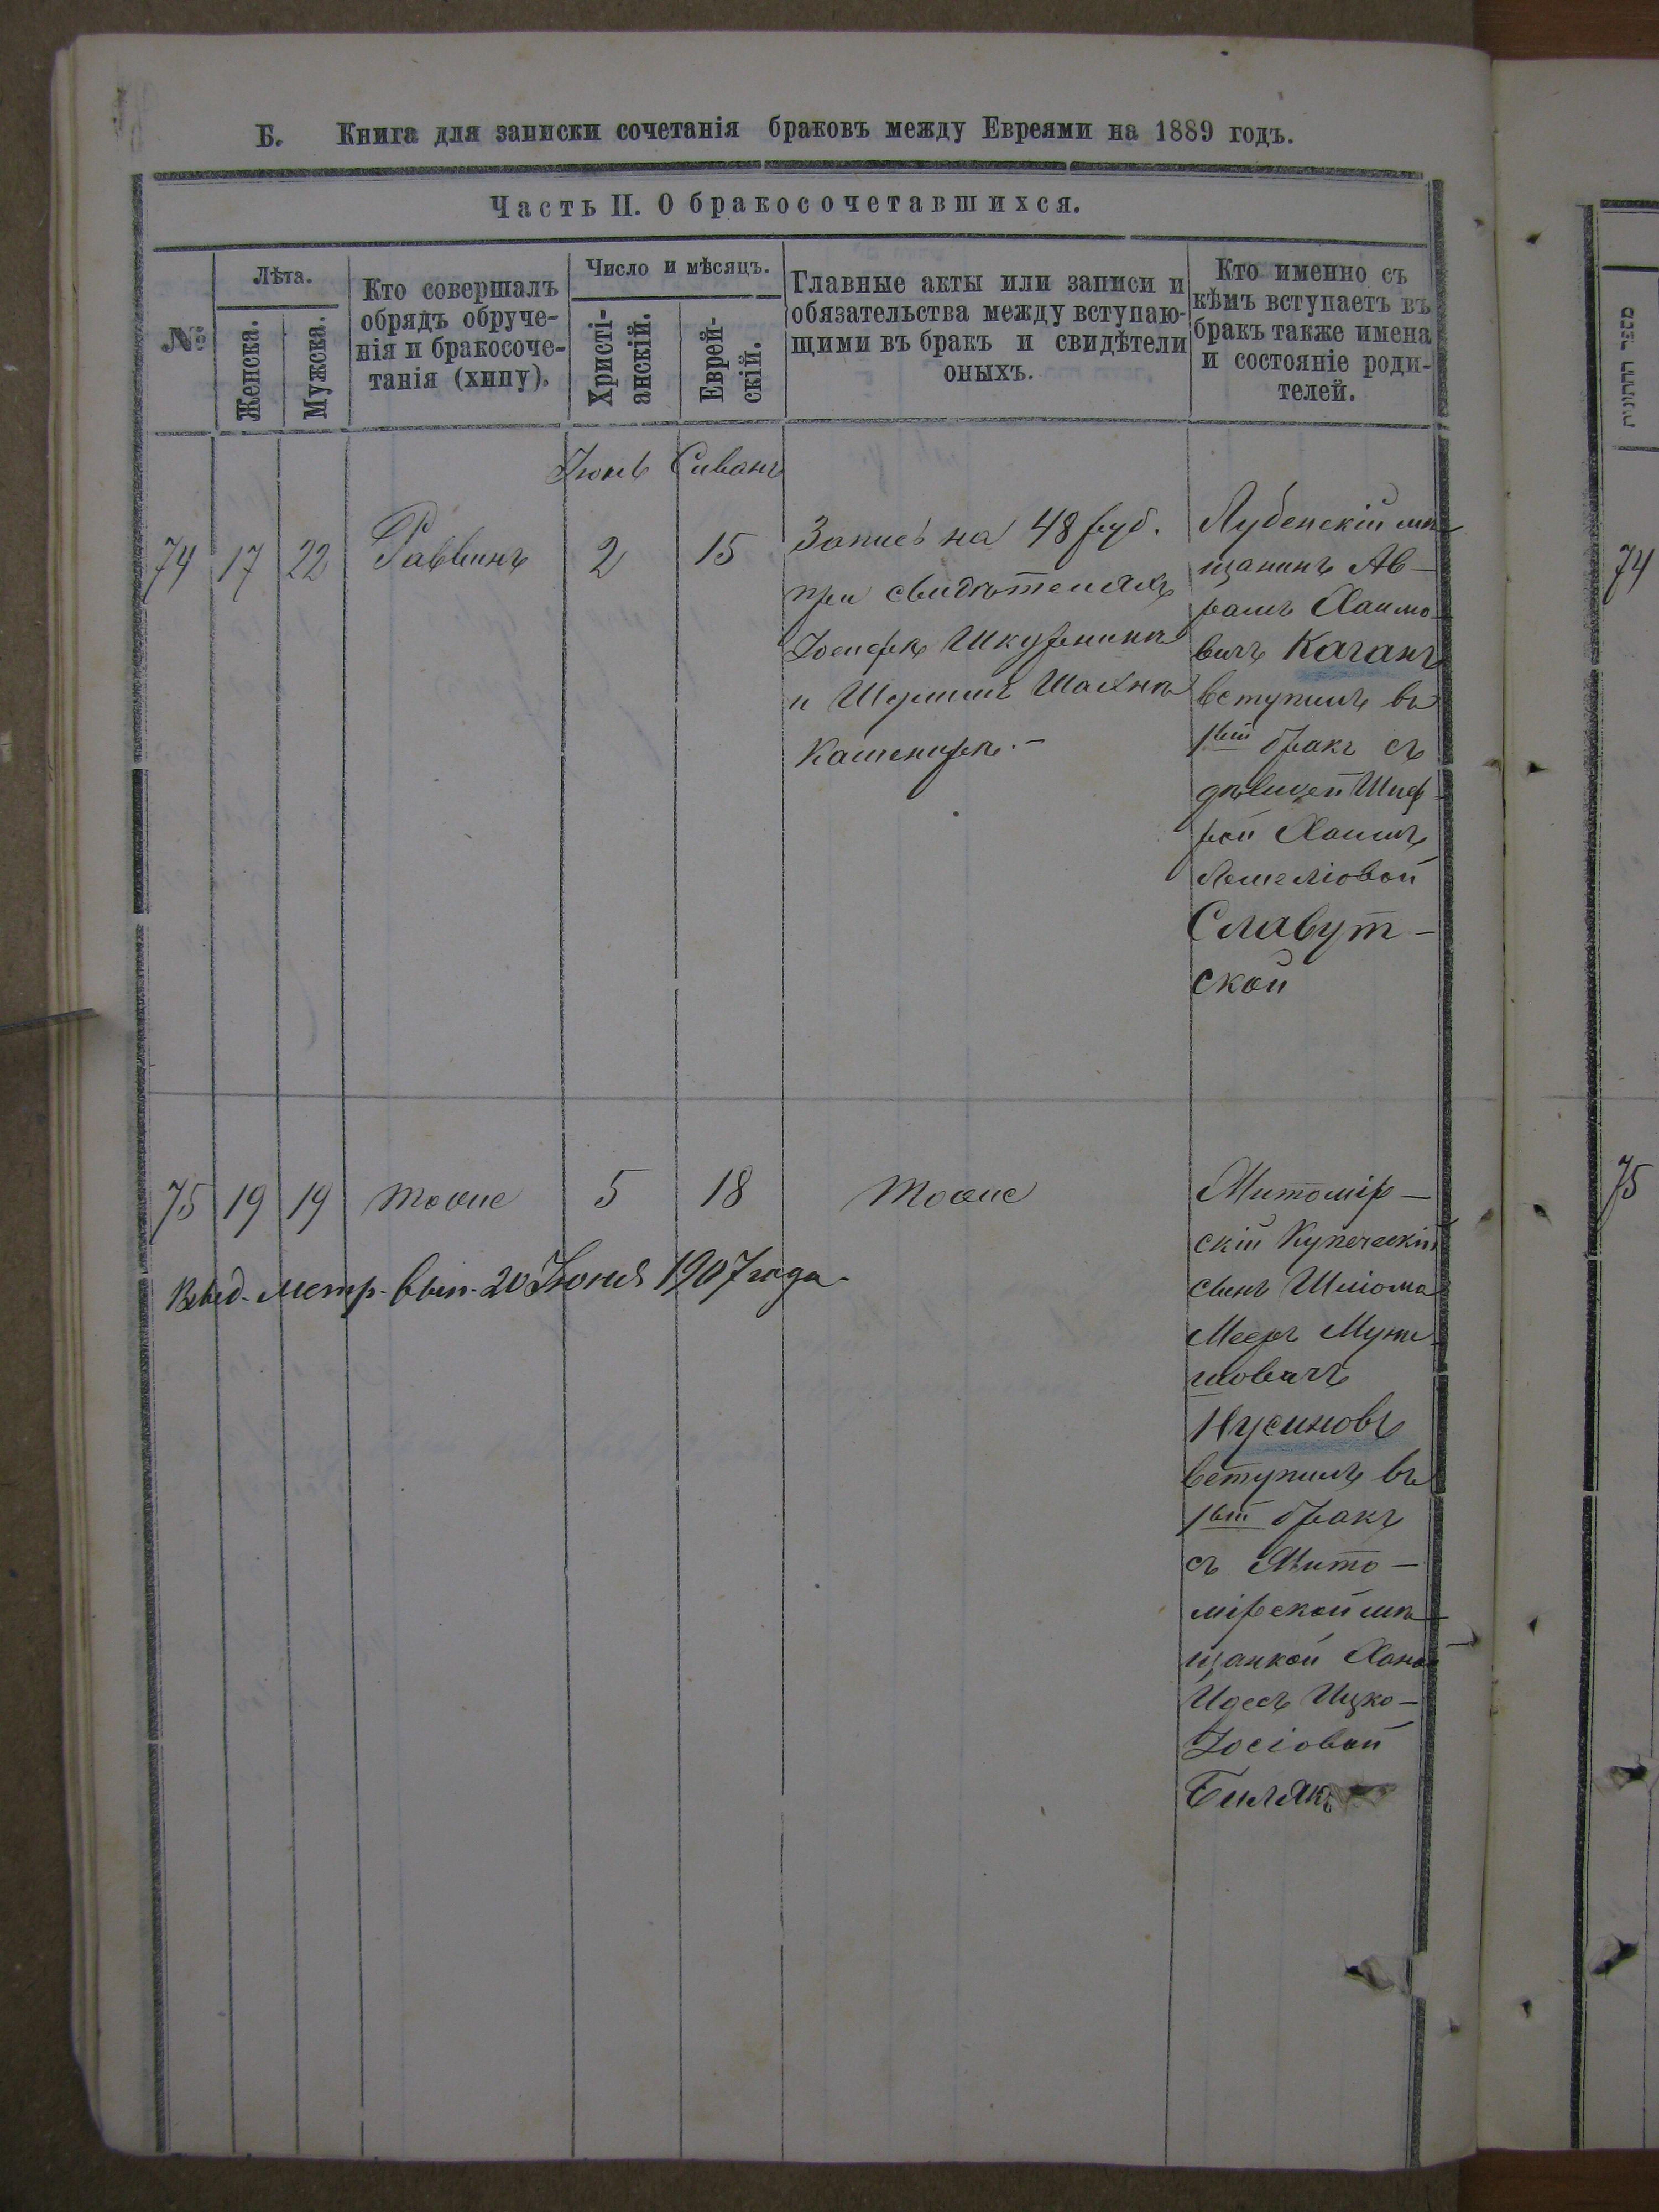 Б. Книга для записки сочетанія браковъ между Евреями на 1889 годъ.
Часть II. О бракосочетавшихся.
№
Лѣта.
Женска.
Мужска.
Кто совершалъ
обрядъ обруче-
нія и бракосоче-
танія (хипу).
Число и мѣсяцъ.
Христі-
анскій.
Еврей-
скій.
Главные акты или записи и
обязательства между вступаю-
щими въ бракъ и свидѣтели
оныхъ.
Кто именно съ
кѣмъ вступаетъ въ
бракъ также имена
и состояніе роди-
телей.
Іюнь Сиванъ
74 17 22 Раввинъ 2 15
Запись на 48 руб.
при свидѣтеляхъ
Іосифѣ Шкурникѣ
и Шулимѣ Шахнѣ
Лубенскій мѣ-
щанинъ Ав-
рамъ Хаимо-
вичъ Каганъ
вступилъ въ
1ый бракъ съ
дѣвицей Шиф-
рой Хаимъ
Славут-
ской
75 19 19 тоже 5 18 тоже
Житомір-
скій Купеческій
сынъ Шліома
Мееръ
Нусиновъ
вступилъ въ
1ый бракъ
съ Жито-
мірской мѣ-
щанкой Ханой
Идесъ Ицко-
Іосіовой
Билякъ
Выд. метр. вып. 20 Іюня 1907 года.
מספר החתונות
74
75